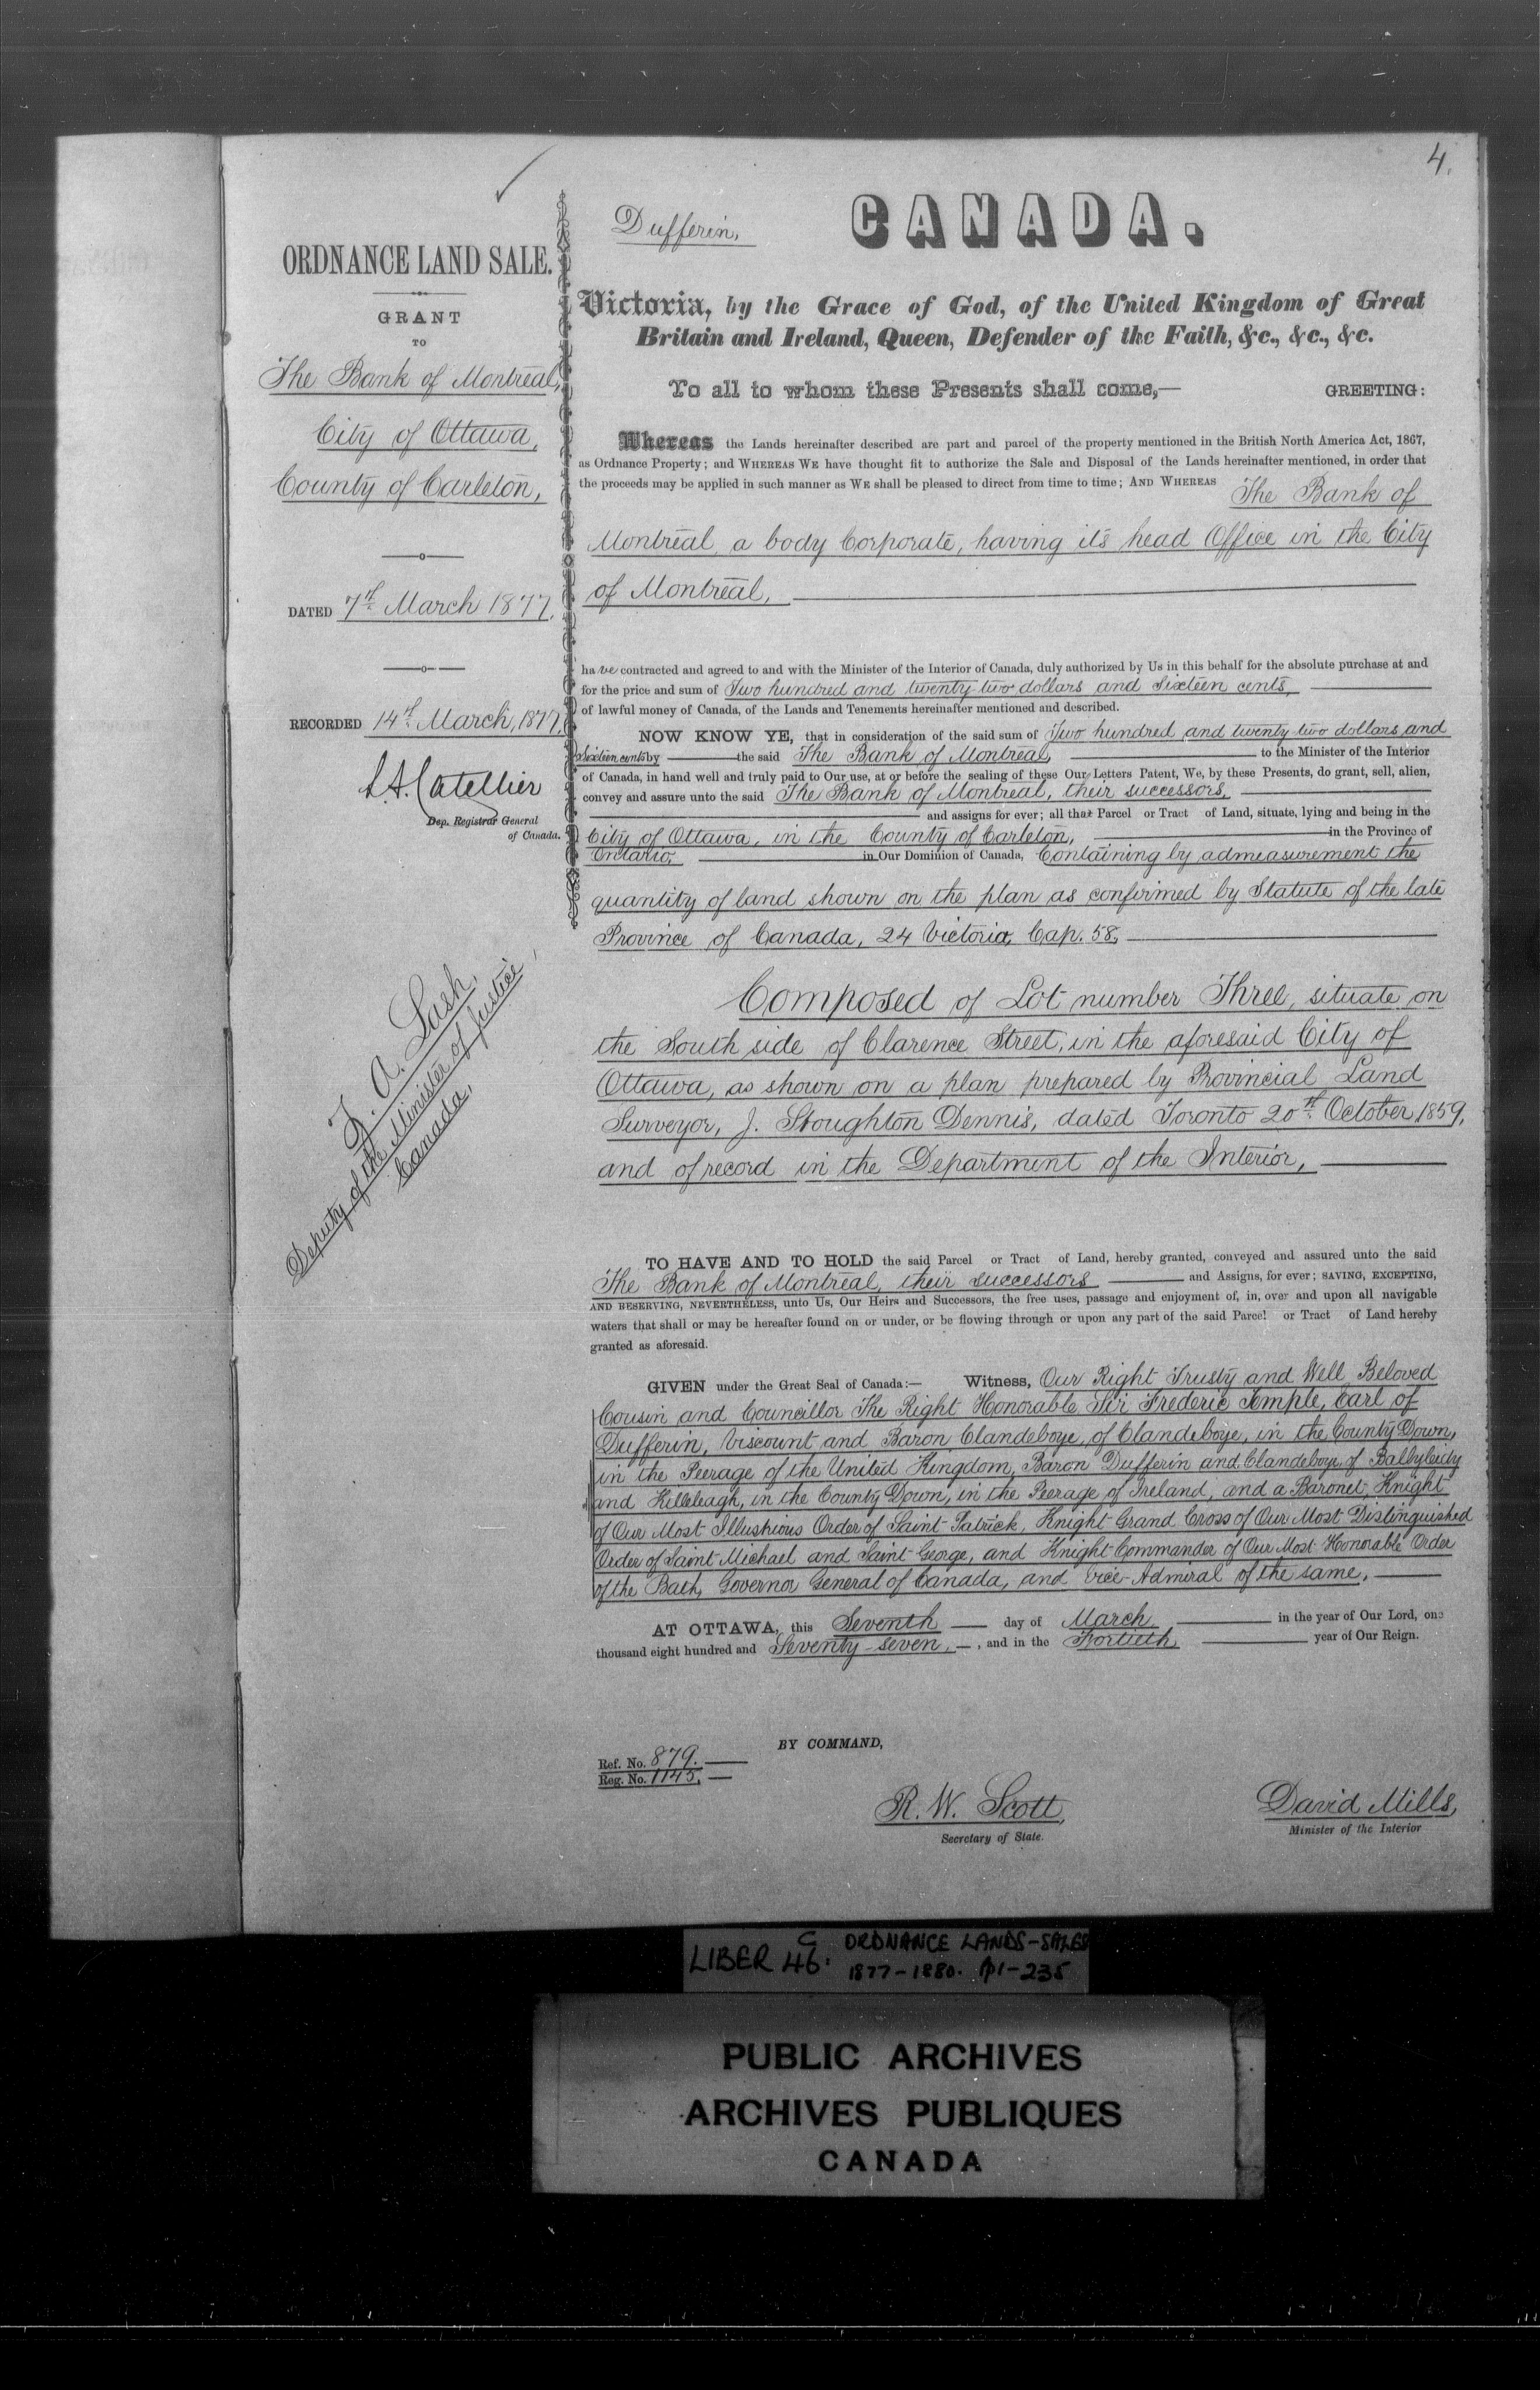 4.
ORDNANCE LAND SALE.
GRANT
TO
The Bank of Montreal,
City of Ottawa,
County of Carleton,
DATED 7th March 1877.
RECORDED 14th March, 1877.
L.A. Catellier
Dep. Registrar General
of Canada.
Z. A. Lash,
Deputy of the Minister of Justice,
Canada.
Dufferin,
CANADA.
Victoria, by the Grace of God, of the United Kingdom of Great
Britain and Ireland, Queen, Defender of the Faith, &c., &c., &c.
To all to whom these Presents shall come,— GREETING:
Whereas the Lands hereinafter described are part and parcel of the property mentioned in the British North America Act, 1867,
as Ordnance Property; and WHEREAS WE have thought fit to authorize the Sale and Disposal of the Lands hereinafter mentioned, in order that
the proceeds may be applied in such manner as WE shall be pleased to direct from time to time; AND WHEREAS The Bank of
Montreal, a body Corporate, having its head Office in the City
of Montreal,
have contracted and agreed to and with the Minister of the Interior of Canada, duly authorized by Us in this behalf for the absolute purchase at and
for the price and sum of Two hundred and twenty-two dollars and sixteen cents,
of lawful money of Canada, of the Lands and Tenements hereinafter mentioned and described.
NOW KNOW YE, that in consideration of the said sum of Two hundred and twenty two dollars and
Sixteen cents by the said The Bank of Montreal, to the Minister of the Interior
of Canada, in hand well and truly paid to Our use, at or before the sealing of these Our Letters Patent, We, by these Presents, do grant, sell, alien,
convey and assure unto the said The Bank of Montreal, their successors,
and assigns for ever; all that Parcel or Tract of Land, situate, lying and being in the
City of Ottawa, in the County of Carleton, in the Province of
Ontario, in Our Dominion of Canada, Containing by admeasurement the
quantity of land shown on the plan as confirmed by Statute of the late
Province of Canada, 24 Victoria, Cap. 58,
Composed of Lot number Three, situate on
the South side of Clarence Street, in the aforesaid City of
Ottawa, as shown on a plan prepared by Provincial Land
Surveyor, J. Stoughton Dennis, dated Toronto 20th October 1859,
and of record in the Department of the Interior,
TO HAVE AND TO HOLD the said Parcel or Tract of Land, hereby granted, conveyed and assured unto the said
The Bank of Montreal, their successors and Assigns, for ever; SAVING, EXCEPTING,
AND RESERVING, NEVERTHELESS, unto Us, Our Heirs and Successors, the free uses, passage and enjoyment of, in, over and upon all navigable
waters that shall or may be hereafter found on or under, or be flowing through or upon any part of the said Parcel or Tract of Land hereby
granted as aforesaid.
GIVEN under the Great Seal of Canada:— Witness, Our Right Trusty and Well Beloved
Cousin and Councillor The Right Honorable Sir Frederic Temple, Earl of
Dufferin, Viscount and Baron Clandeboye, of Clandeboye, in the County Down,
in the Peerage of the United Kingdom, Baron Dufferin and Clandeboye, of Ballyleidy
and Killeleagh, in the County Down, in the Peerage of Ireland, and a Baronet, Knight
of Our Most Illustrious Order of Saint Patrick, Knight Grand Cross of Our Most Distinguished
Order of Saint Michael and Saint George, and Knight Commander of Our Most Honorable Order
of the Bath, Governor General of Canada, and Vice-Admiral of the same,
AT OTTAWA, this Seventh day of March in the year of Our Lord, one
thousand eight hundred and Seventy-seven, and in the Fortieth year of Our Reign.
BY COMMAND,
Ref. No. 879.
Reg. No. 1145.
R. W. Scott,
Secretary of State.
David Mills,
Minister of the Interior
LIBER 46. C ORDNANCE LANDS-SALES
1877-1880. p1-235
PUBLIC ARCHIVES
ARCHIVES PUBLIQUES
CANADA